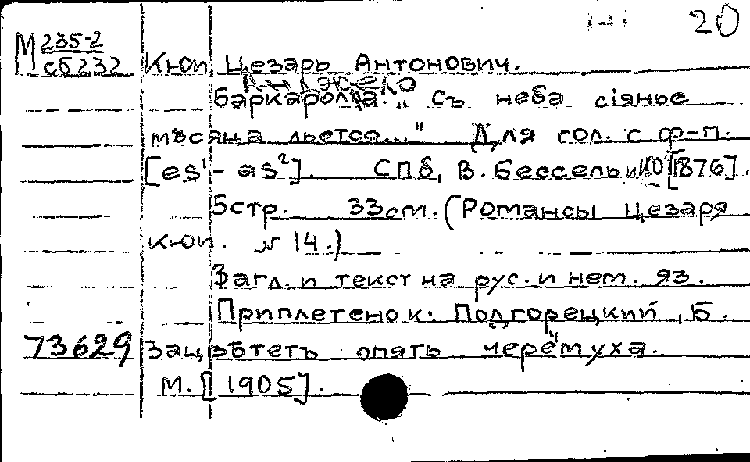 20
М 235-2
сб232 Кюи, Цезарь Антонович.
Анджело
баркаролла. „Съ неба сіянье
мѣсяца льется..." Для гол. с ф-п.
[es¹-as²]. СПб, В. Бессель и К0 [1876].
5стр. 33см. (Романсы Цезаря
Кюи. № 14.)
Загл. и текст на рус. и нем. яз.
Приплетено к: Подгорецкий, Б.
73629 Зацвѣтетъ опять черёмуха.
М. [1905].